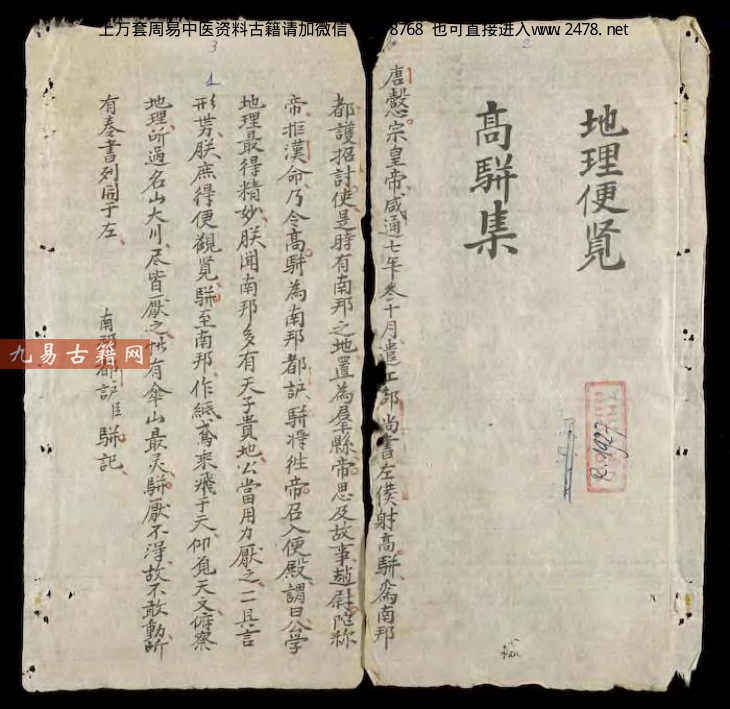 上万套周易中医资料古籍请加微信 8768 也可直接进入www.2478.net
地理便覧
高駢集
R.1927
唐懿宗皇帝咸通七年叁十月遣工部尚書左僕射高駢為南邦
都護招討使是時有南邦之地置為郡縣帝思及故事趙尉佗称
帝拒漢命乃令高駢為南邦都护駢将徃帝召入便殿謂曰公学
地理最得精妙朕聞南邦多有天子貴地公當用力厭之一一具言
形势朕庶得便觀覧駢至南邦作紙鳶来飛于天仰覓天文俯察
地理所過名山大川尽皆厭之惟有傘山最灵駢厭不得故不敢動所
有奏書列同于左
南邦都护臣駢記
3
1
2
九易古籍网